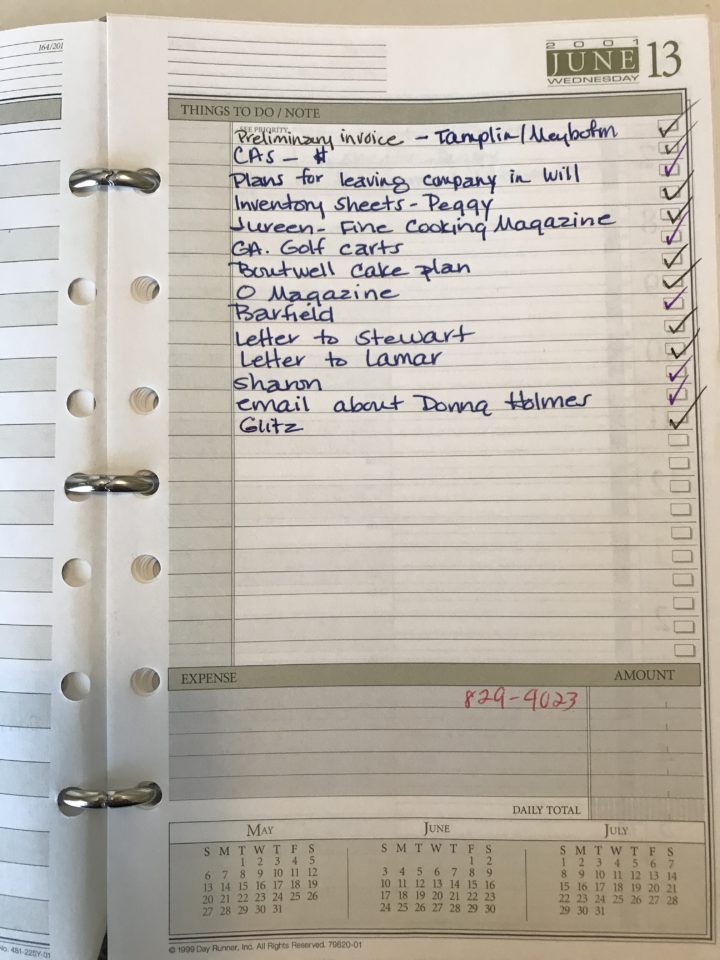 164/201
2001
JUNE 13
WEDNESDAY
THINGS TO DO / NOTE
SEE PRIORITY
Preliminary invoice - Tamplin/Meybohm
CAS - #
Plans for leaving company in Will
Inventory sheets - Peggy
Jureen - Fine Cooking Magazine
GA. Golf carts
Boutwell cake plan
O Magazine
Barfield
Letter to Stewart
Letter to Lamar
Sharon
email about Donna Holmes
Glitz
EXPENSE AMOUNT
829-4023
DAILY TOTAL
MAY JUNE JULY
S M T W T F S S M T W T F S S M T W T F S
1 2 3 4 5 1 2 1 2 3 4 5 6 7
6 7 8 9 10 11 12 3 4 5 6 7 8 9 8 9 10 11 12 13 14
13 14 15 16 17 18 19 10 11 12 13 14 15 16 15 16 17 18 19 20 21
20 21 22 23 24 25 26 17 18 19 20 21 22 23 22 23 24 25 26 27 28
27 28 29 30 31 24 25 26 27 28 29 30 29 30 31
No. 481-225Y-01
© 1999 Day Runner, Inc. All Rights Reserved. 79620-01